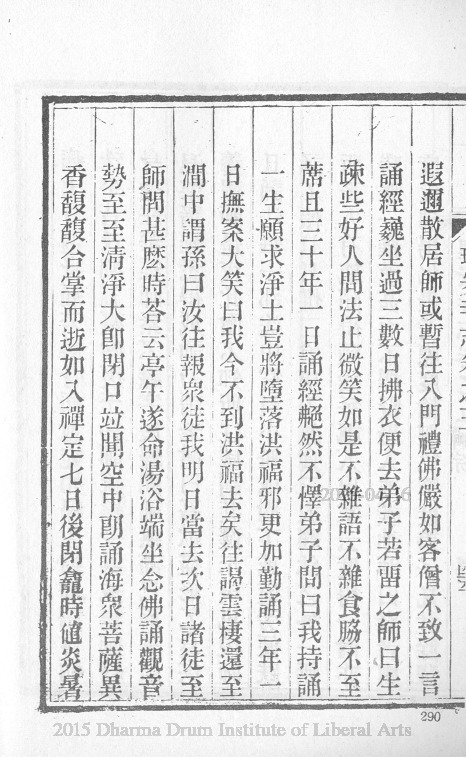 遐邇散居師或暫往入門禮佛嚴如客僧不致一言
誦經巍坐過三數日拂衣便去弟子若畱之師曰生
疎些好人問法止微笑如是不雜語不雜食脇不至
蓆且三十年一日誦經艴然不懌弟子問曰我持誦
一生願求淨土豈將墮落洪福邪更加勤誦三年一
日撫案大笑曰我今不到洪福去矣往謁雲棲還至
澗中謂孫曰汝往報衆徒我明日當去次日諸徒至
師問甚麽時荅云亭午遂命湯浴端坐念佛誦觀音
勢至至清淨大卽閉口竝聞空中朗誦海衆菩薩異
香馥馥合掌而逝如入禪定七日後閉龕時値炎暑
290
2015 Dharma Drum Institute of Liberal Arts